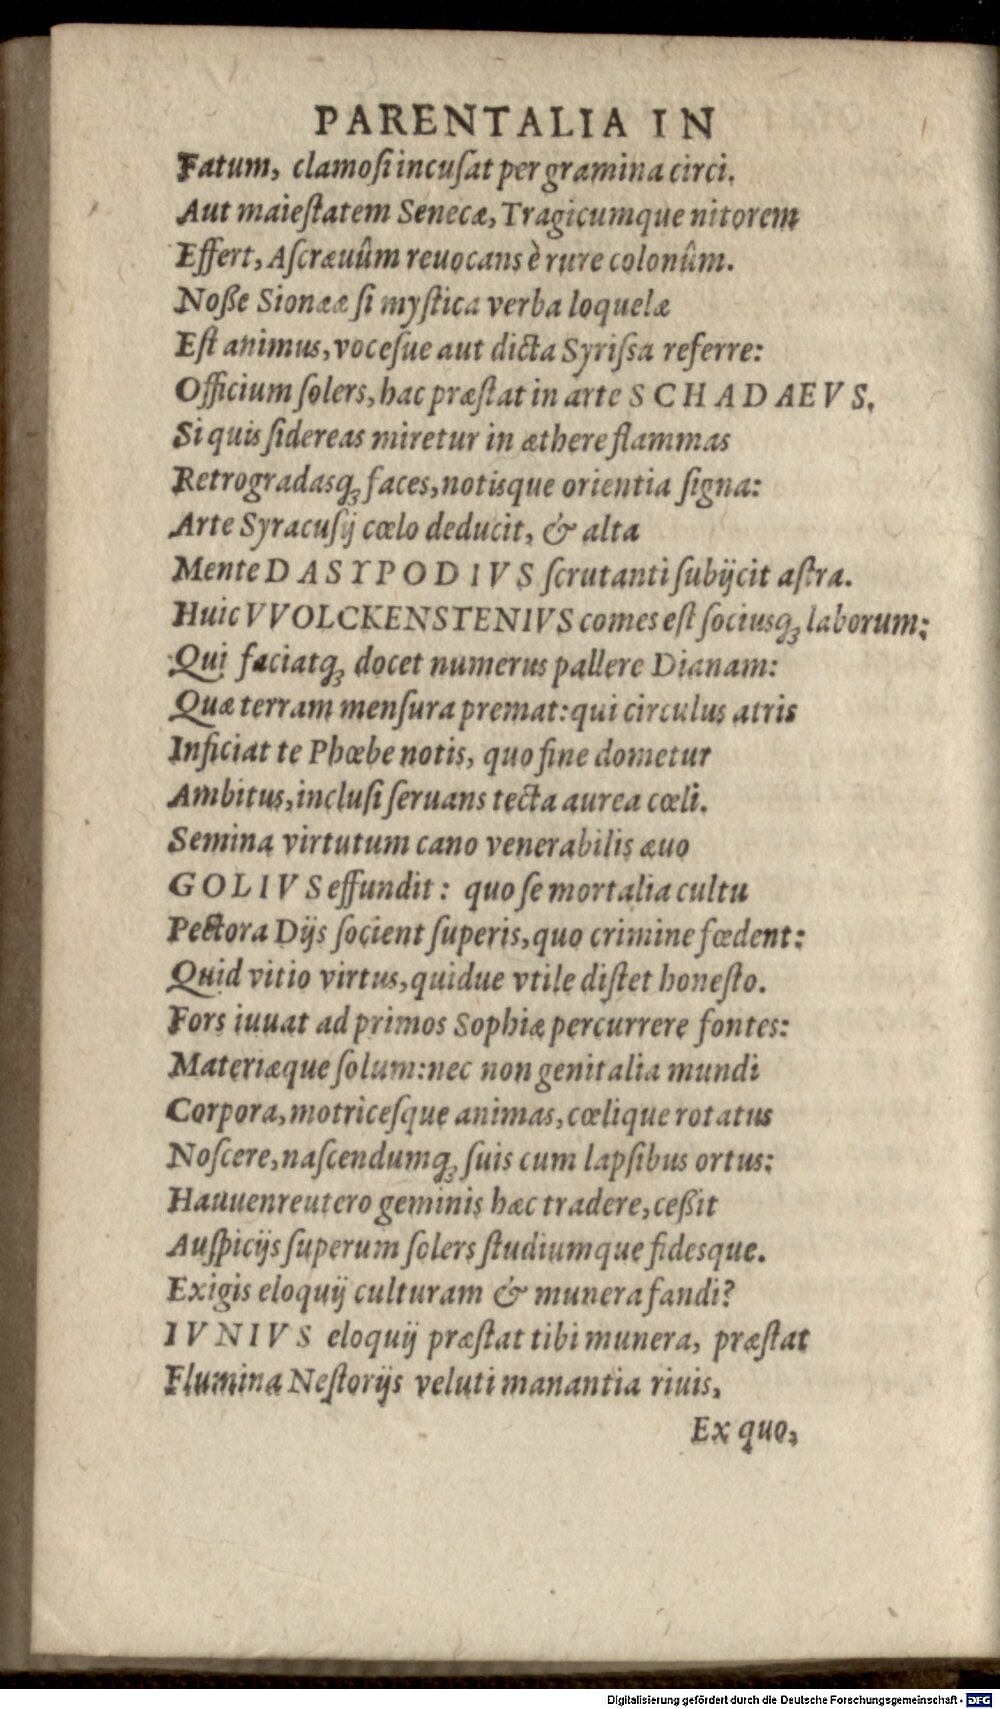 PARENTALIA IN
Fatum, clamoſi incuſat per gramina circi.
Aut maieſtatem Senecæ, Tragicumque nitorem
Effert, Aſcræuûm reuocans è rure colonûm.
Noße Sionææ ſi myſtica verba loquelæ
Eſt animus, voceſue aut dicta Syriſsa referre:
Officium ſolers, hac præſtat in arte SCHADAEVS.
Si quis ſidereas miretur in æthere flammas
Retrogradasqꝫ faces, notisque orientia ſigna:
Arte Syracuſij cœlo deducit, & alta
Mente DASYPODIVS ſcrutanti ſubijcit aſtra.
Huic VVOLCKENSTENIVS comes eſt ſociusqꝫ laborum:
Qui faciatqꝫ docet numerus pallere Dianam:
Quæ terram menſura premat: qui circulus atris
Inficiat te Phœbe notis, quo fine dometur
Ambitus, incluſi ſeruans tecta aurea cœli.
Semina virtutum cano venerabilis æuo
GOLIVS effundit: quo ſe mortalia cultu
Pectora Dijs ſocient ſuperis, quo crimine fœdent:
Quid vitio virtus, quidue vtile diſtet honeſto.
Fors iuuat ad primos Sophiæ percurrere fontes:
Materiæque ſolum: nec non genitalia mundi
Corpora, motriceſque animas, cœlique rotatus
Noſcere, naſcendumqꝫ ſuis cum lapſibus ortus:
Hauuenreutero geminis hæc tradere, ceßit
Auſpicijs ſuperum ſolers ſtudiumque fidesque.
Exigis eloquij culturam & munera fandi?
IVNIVS eloquij præſtat tibi munera, præſtat
Flumina Neſtorijs veluti manantia riuis,
Ex quo,
Digitalisierung gefördert durch die Deutsche Forschungsgemeinschaft - DFG